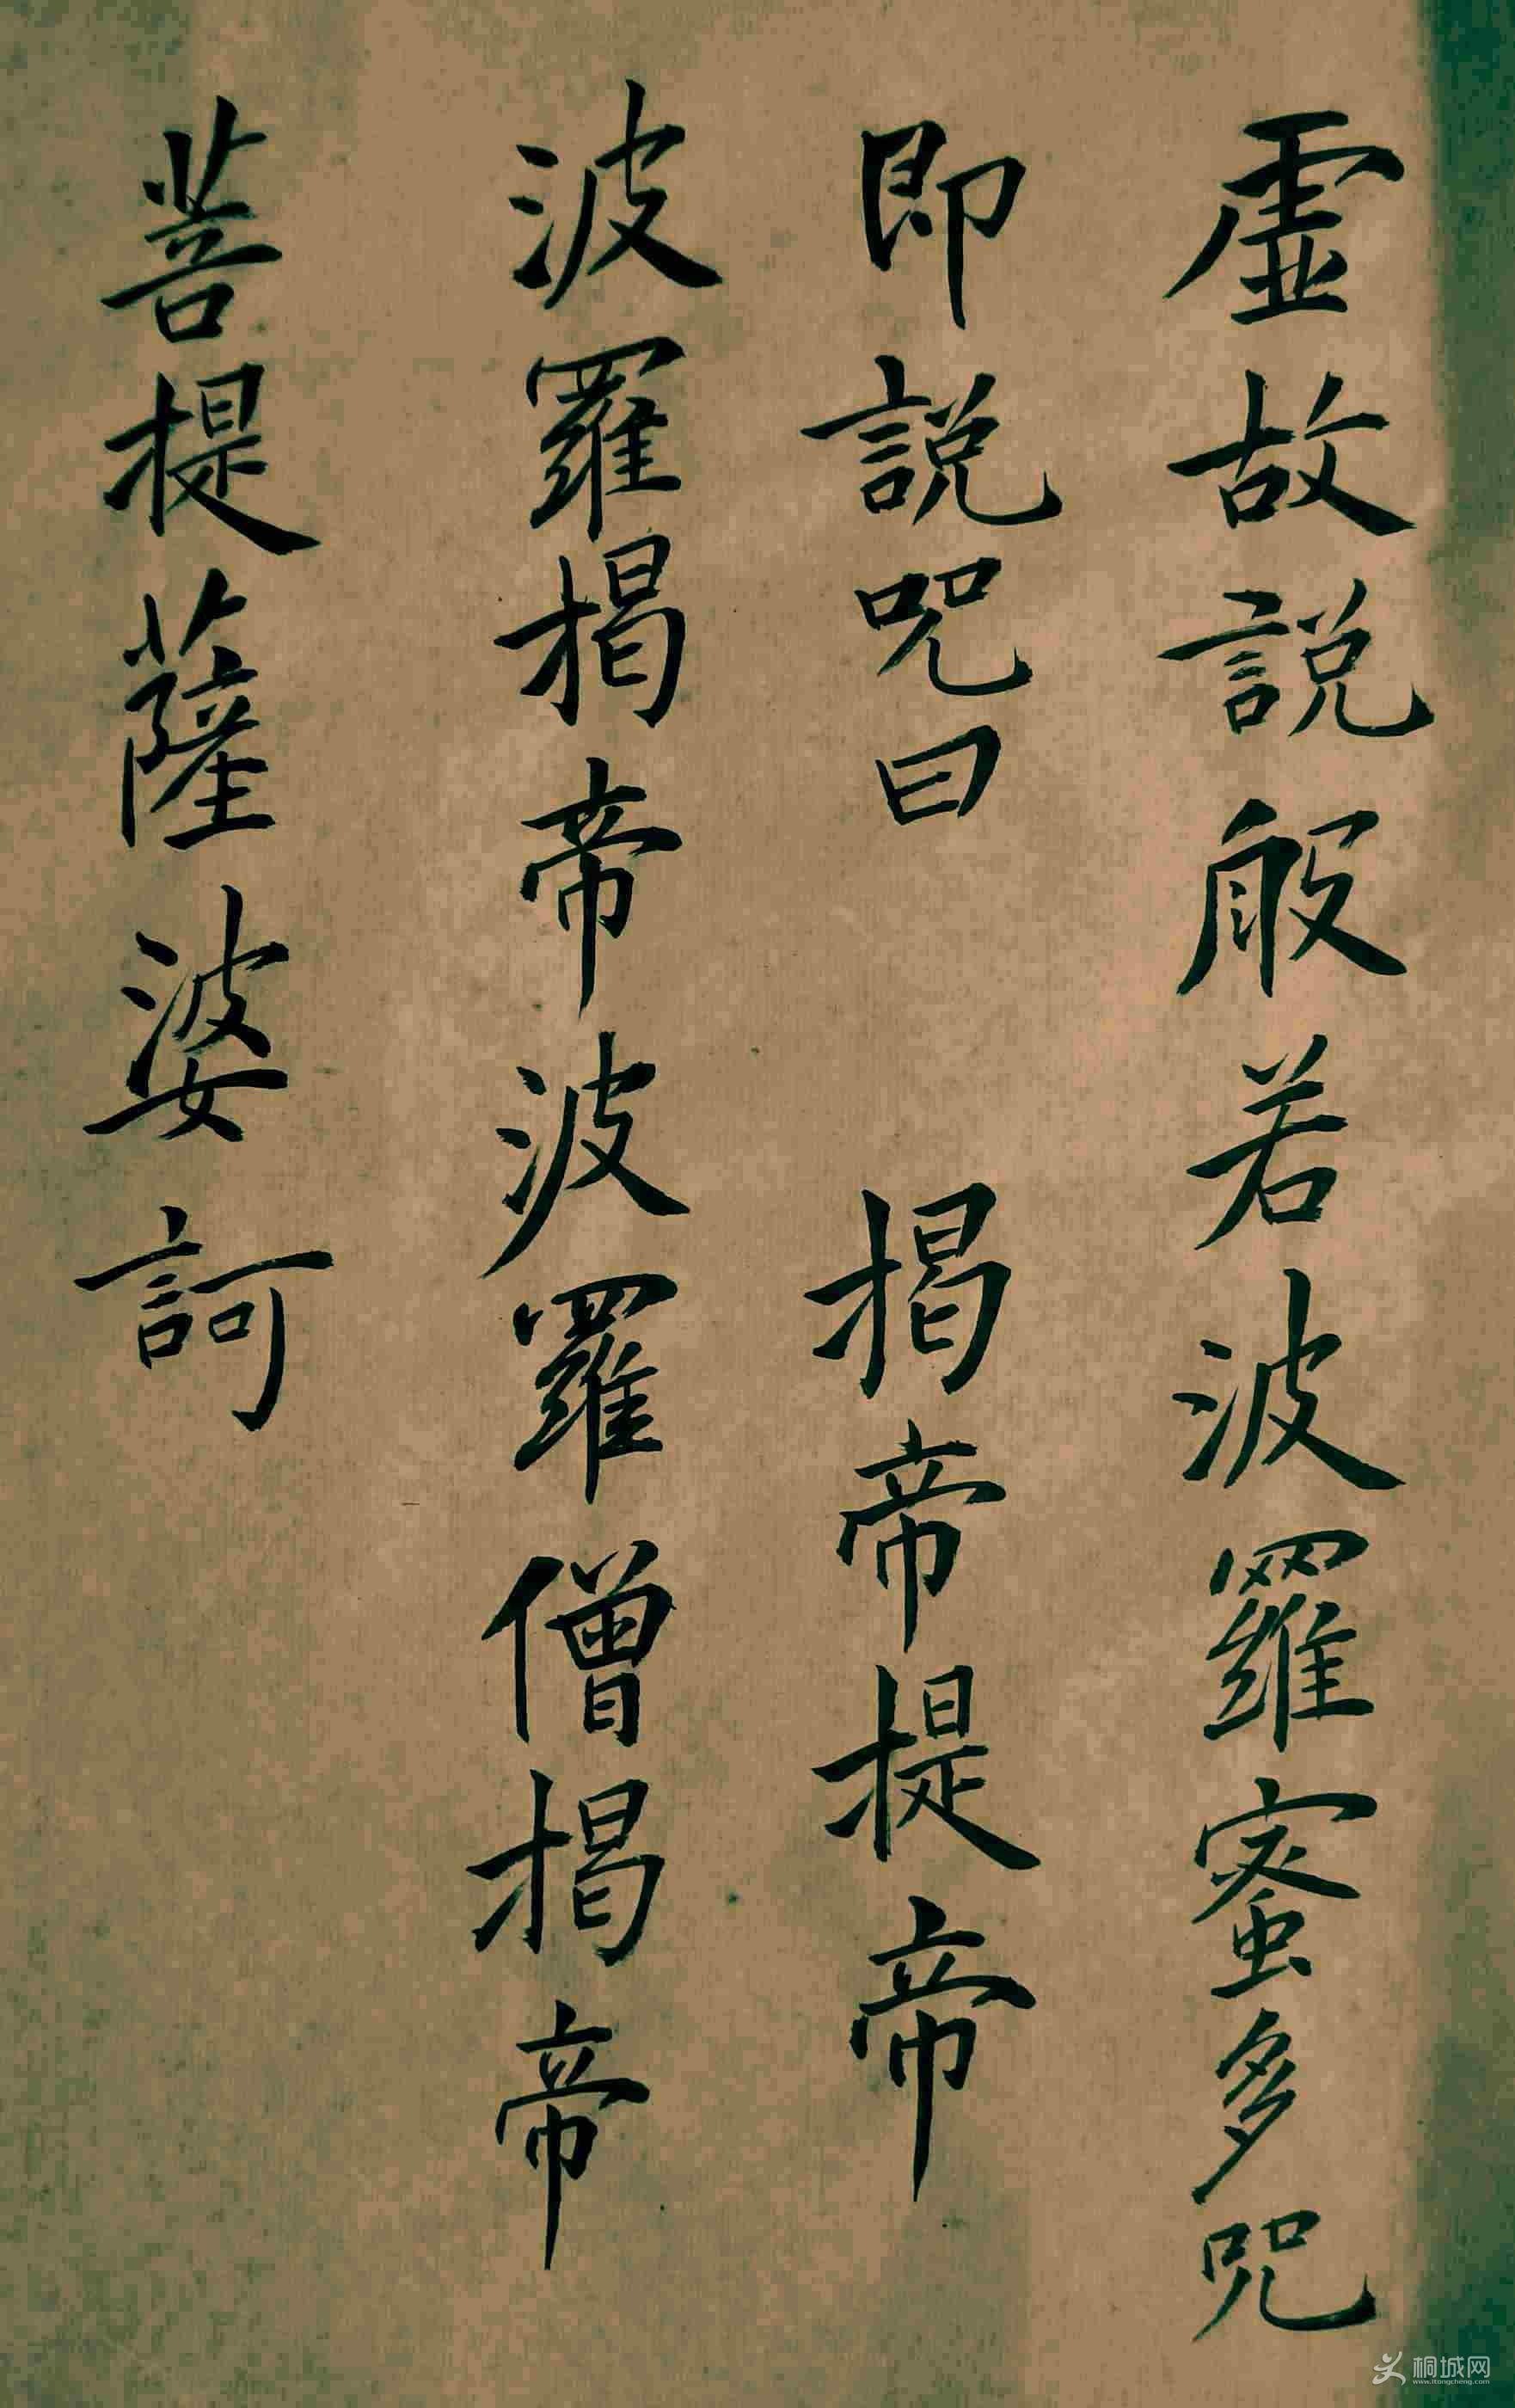 虛故說般若波羅蜜多咒
即說咒曰 揭帝提帝
波羅揭帝波羅僧揭帝
菩提薩婆訶
桐城网
www.itongcheng.com